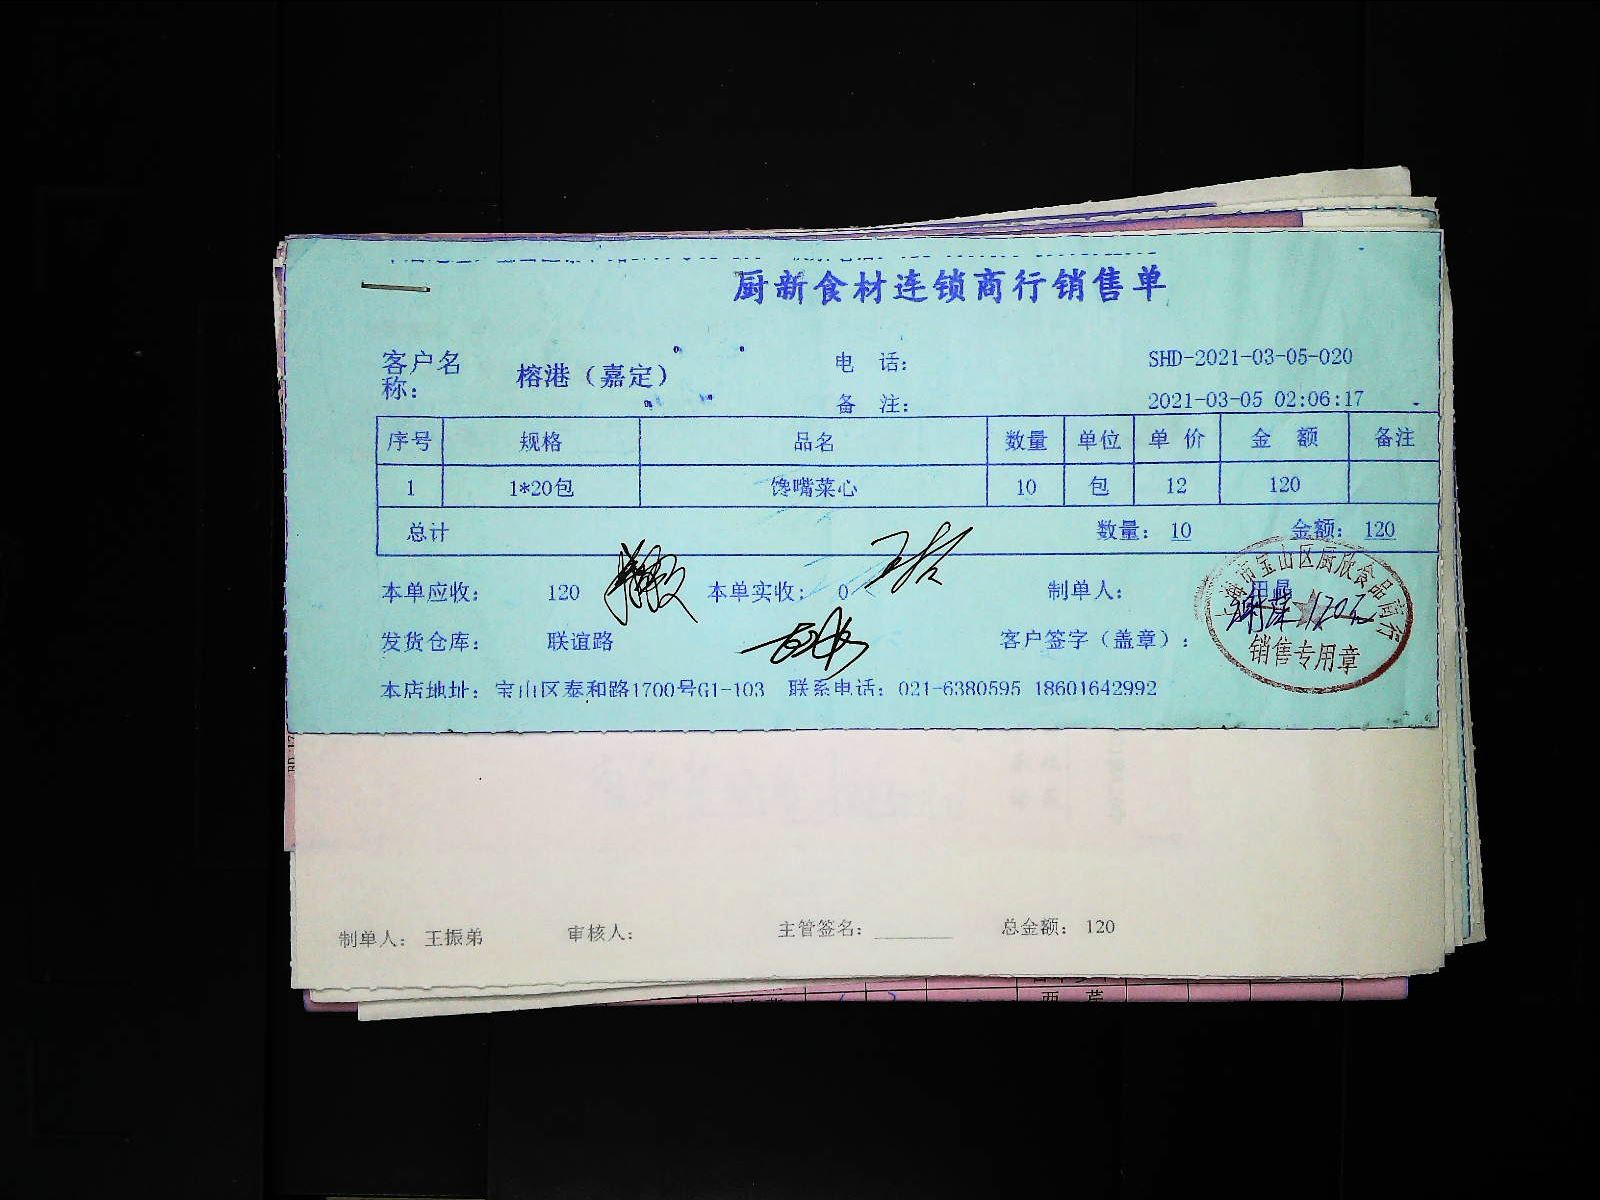 厨新食材连锁商行销售单
客户名称： 榕港（嘉定） 电 话： SHD-2021-03-05-020
备 注： 2021-03-05 02:06:17
序号 规格 品名 数量 单位 单 价 金 额 备注
1 1*20包 馋嘴菜心 10 包 12 120
总计 数量： 10 金额： 120
本单应收： 120 本单实收： 0 制单人：
发货仓库： 联谊路 客户签字（盖章）：
本店地址： 宝山区泰和路1700号G1-103 联系电话： 021-6380595 18601642992
上海市宝山区厨欣食品商行
销售专用章
制单人： 王振弟 审核人： 主管签名： 总金额： 120
西 芹